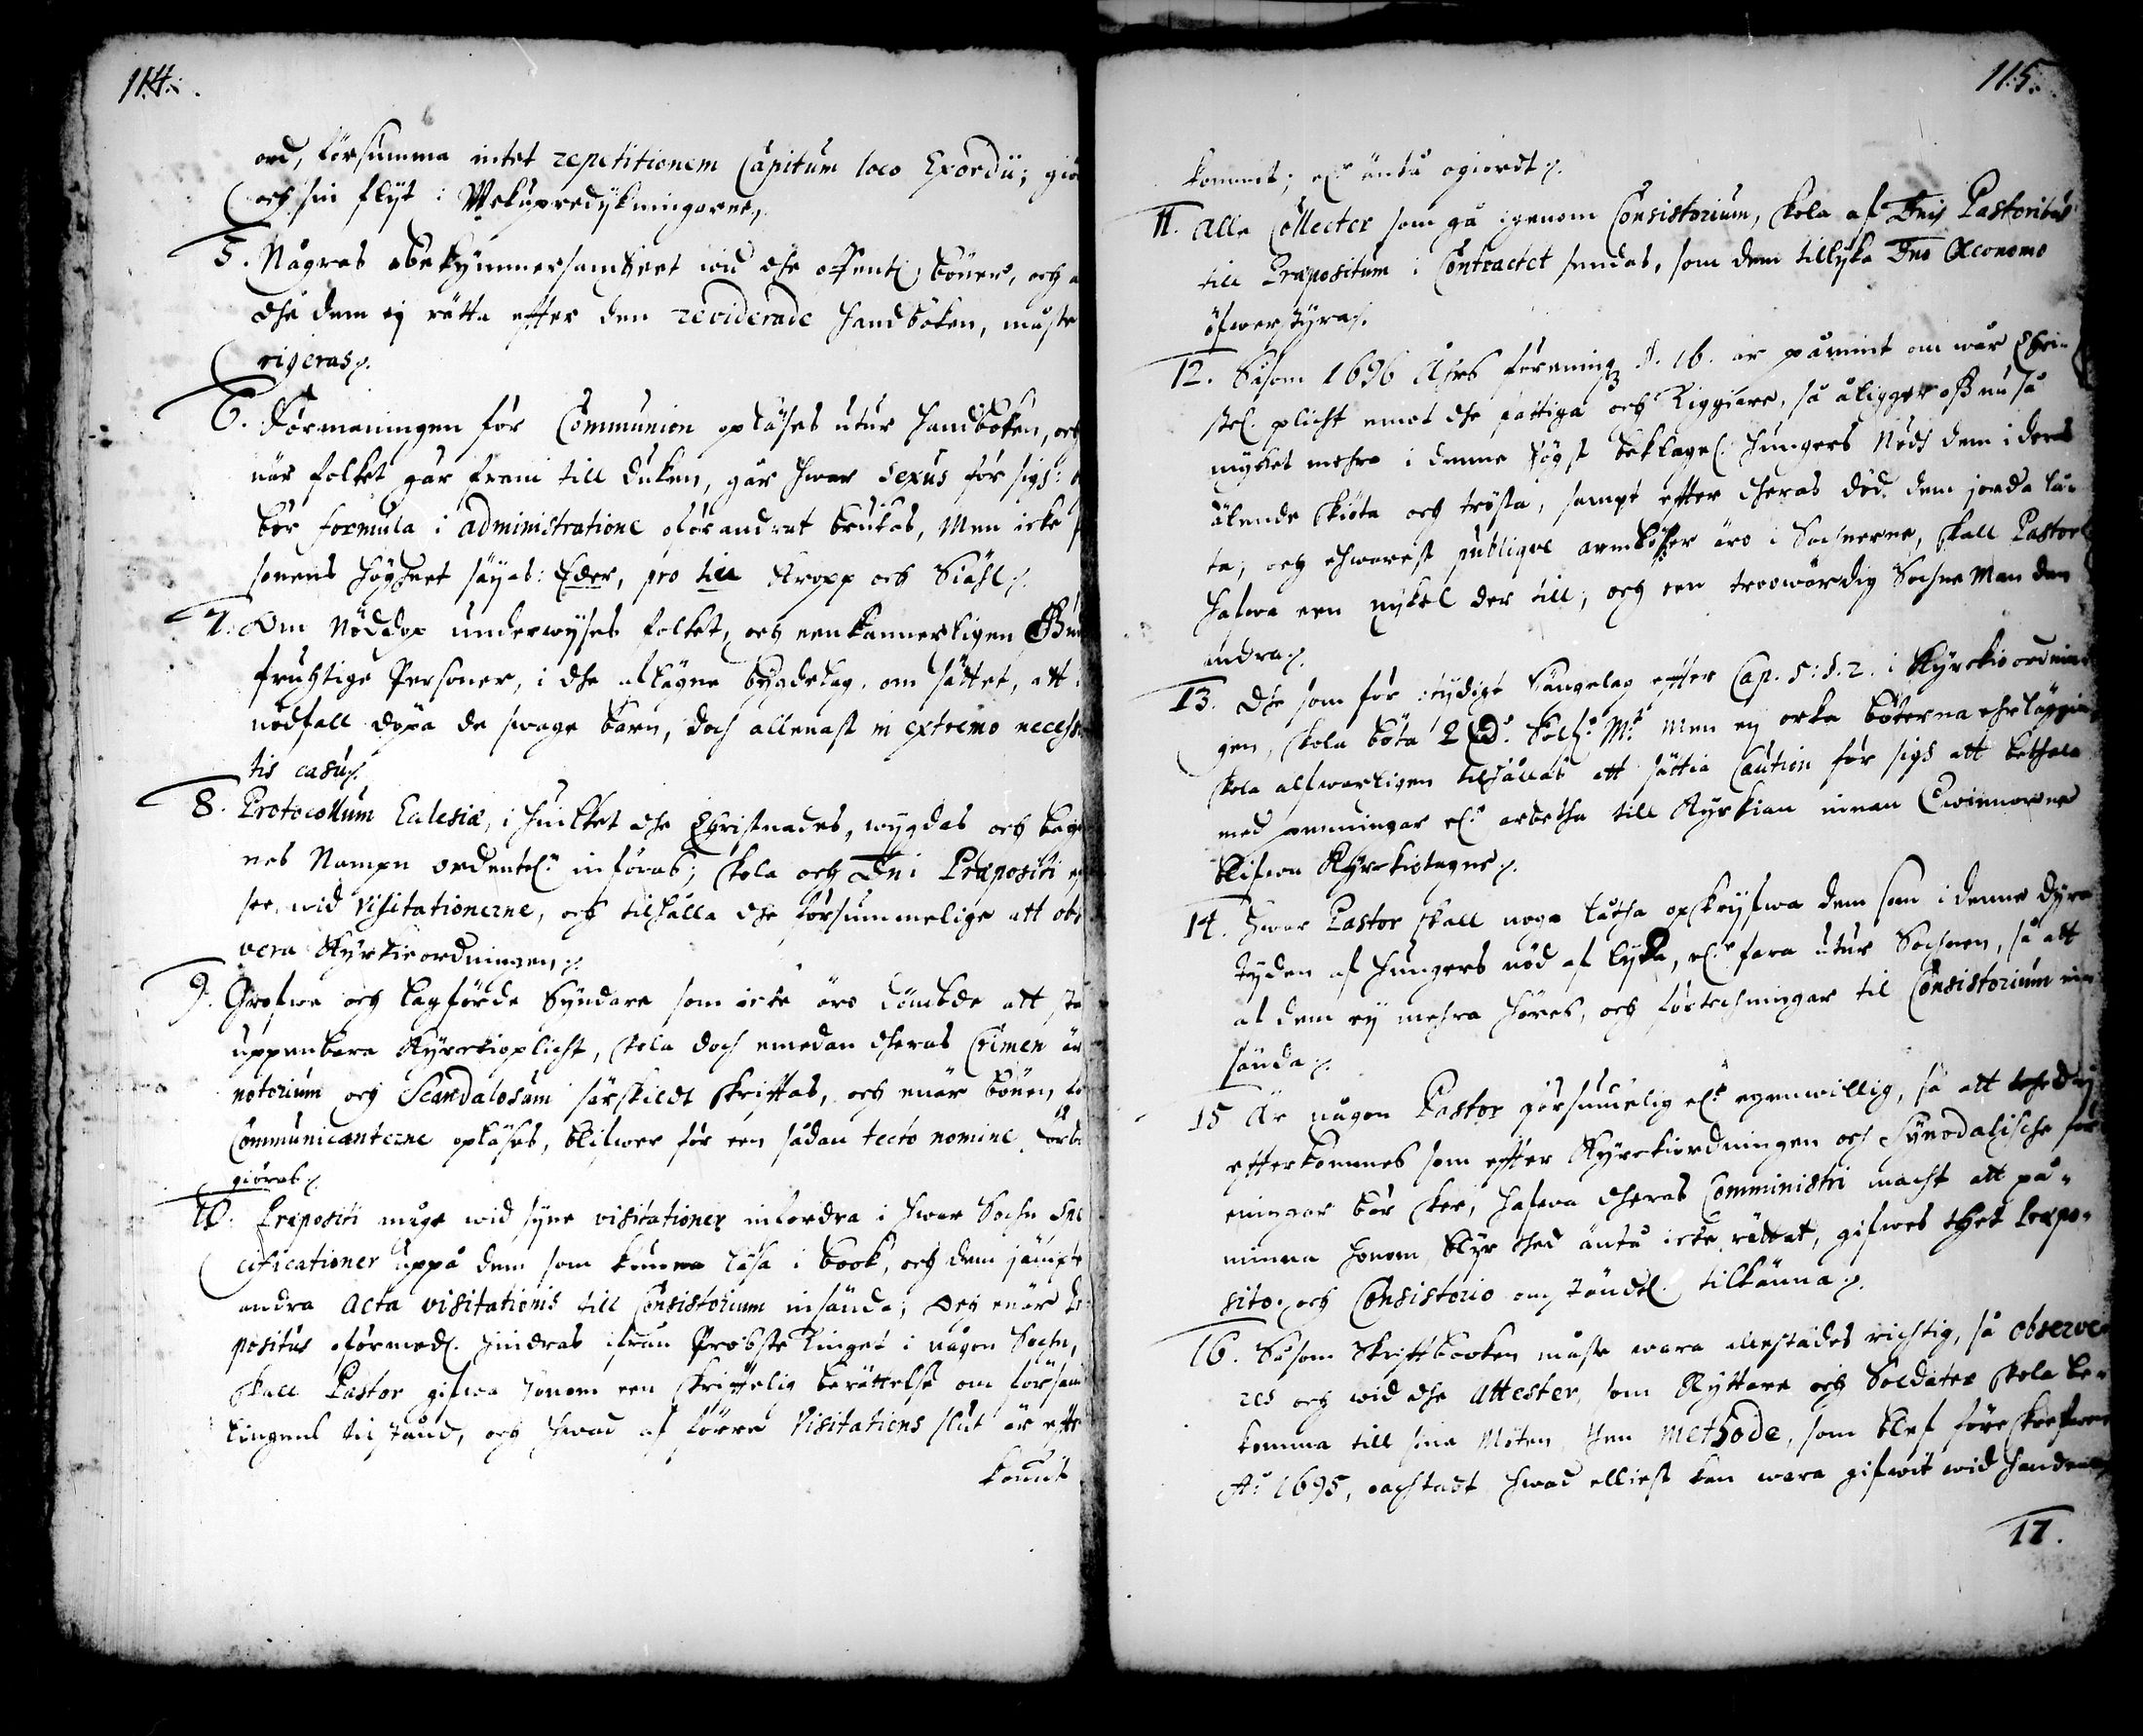 114.
ord, försumma intet repetitionem Capitum loco Exordii; giö
och sin flÿt i Wekupredÿkningarne.
5. Någras obekÿmmersamheet wid dhe offentl: böner, och a
dhe dem ej rätta effter den reviderade handboken, måste
rigeras.
6. Förmaningen för Communion opläses utur handboken, och
när folket går fram till duken, går hwar sexus för sigh:
bör formula i administratione oförandrat brukas, Men icke
sonens höghet säÿas: Eder, pro till Kropp och Siähl.
7. Om Nöddop underwÿses folket, och eenkannerligen
fruchtige Personer, i dhe aflägne bÿgdelag, om sättet, att i
nödfall döpa de swage barn, doch allenast in extremo necessi
tis casu.
8. Protocollum Eclesiæ, i huilket dhe Christnades, wÿgdas och begr
nes Nampn ordentel: införas; skola och Dni Præpositi
see, wid Visitationerne, och tilhålla dhe försummelige att obs
vera Kÿrkieordningen.
9. Grofwe och lagförde Sÿndare som icke äro dömbde att stå
uppenbara Kÿrckioplicht, skola doch emedan dheras Crimen är
notorium och Scandalosum särskildt skrifftas, och enär bönen,
Communicanterne opläses, blifwer för een sådan tecto nomine förb
giöras.
10. Præpositi måge wid sÿne visitationer infordra i hwar Sochn Spe
cificationer uppå dem som kunna läsa i book, och dem jämpte
andra Acta visitationis till Consistorium insända; Och enär Præ
positus oförmodl. hindras ifrån Probste Tinget i någon Sochn,
skall Pastor gifwa honom een skrifftelig berättelse om försam
lingens tilstånd, och hwad af förra Visitations slut är effter
kommit
115.
kommit; el: ännu ogiordt.
11. Alla Collecter som gå igenom Consistorium, skola af Dnis Pastoribus
till Præpositum i Contractet sendas, som dem tillÿka Dno Œconomo
öfwerstÿra.
12. Såsom 1696 Åhrs förening §. 16. är påmint om wår Chri-
stel. plicht emot dhe fattiga och Tiggiare, så åligger osz nu så
mÿcket mehra i denne högst beklagel. hungers Nödh dem i deras
älende skiöta och trösta, sampt effter dheras död dem jorda låt
ta; och ehwarest publique armböszer äro i Sochnerne, skall Pastor
hafwa een nÿkel der till, och een trowärdig Sochne Man den
andra.
13. Dhe som för otÿdigt Sängelag effter Cap. 5: §. 2. i Kÿrckio ordnin
gen, skola böta 2 D:r Sölf:r M:t men eÿ orka böterna ehrläggia
skola alfwarligen tilhållas att sättia Caution för sigh att bethala
med penningar el: arbetha till Kÿrkian innan Qwinnorne
blifwa Kÿrckiotagne.
14. Hwar Pastor skall noga låtha opskrÿfwa dem som i denne dÿra
tÿden af hungers nöd af lÿda, el: fara utur Sochnen, så att
af dem eÿ mehra höres, och förtechningar til Consistorium in
sända.
15 Är någon Pastor försummelig el: egenwillig, så att dhed eÿ
effterkommes som effter Kÿrckiordningen och Sÿnodalische för
eningar bör skee, hafwa dheras Comministri macht att på-
minna honom, blÿr thed ändå icke rättat, gifwes thet Præpo-
sito och Consistorio omständel. tilkänna.
16. Såsom Skrifftbooken måste wara allestädes richtig, så observe
res och wid dhe Attester, som Rÿttare och Soldater skola be-
komma till sina Möten then methode, som blef föreskrefwen
A:o 1695, oachtadt hwad elliest kan wara gifwit wid handen.
17.